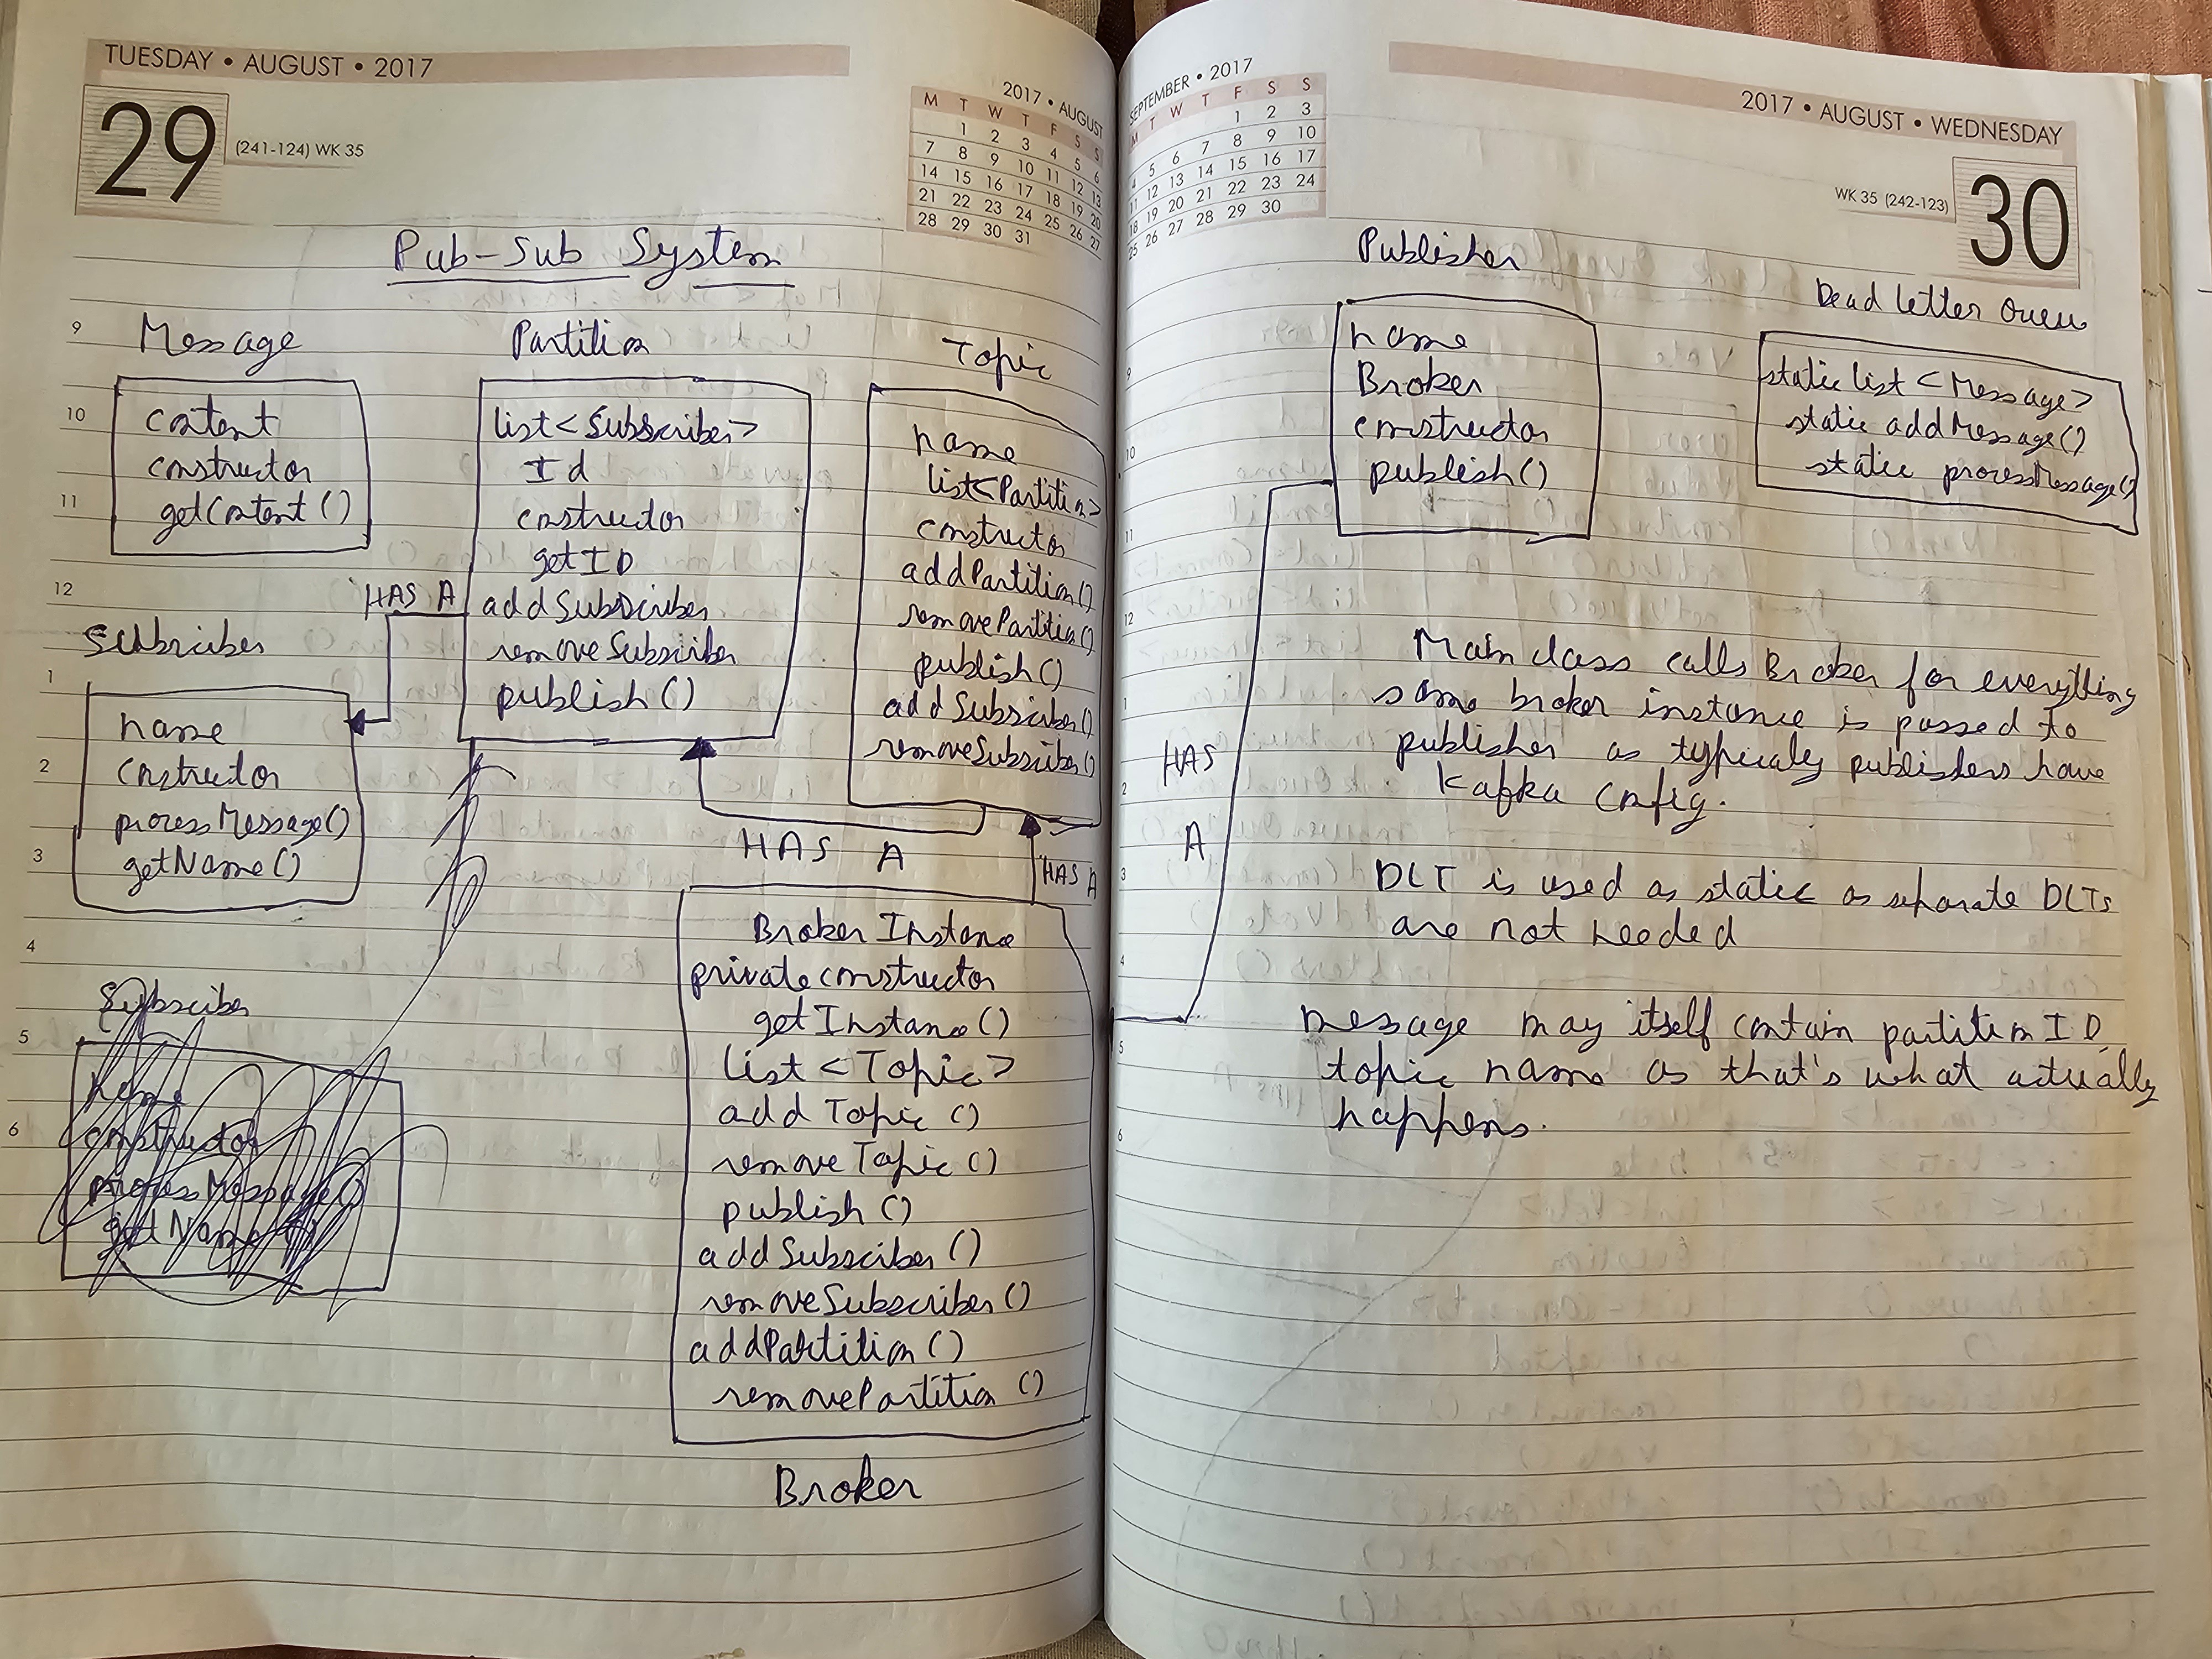 TUESDAY • AUGUST • 2017
29
(241-124) WK 35
2017 • AUGUST
M T W T F S S
1 2 3 4 5 6
7 8 9 10 11 12 13
14 15 16 17 18 19 20
21 22 23 24 25 26 27
28 29 30 31
Pub-Sub System
Message
content
constructor
getContent()
Partition
list<Subscriber>
Id
constructor
getID
addSubscriber
removeSubscriber
publish()
Topic
name
list<Partition>
constructor
addPartition()
removePartition()
publish()
addSubscriber()
removeSubscriber()
HAS A
Subriber
name
constructor
processMessage()
getName()
HAS A
HAS A
Broker Instance
private constructor
getInstance()
list <Topic>
add Topic ()
remove Topic ()
publish ()
addSubsciber ()
removeSubscriber ()
addPartition ()
removePartition ()
Broker
Subsciber
name
constructor
processMessage()
getName()
9
10
11
12
1
2
3
4
5
6
SEPTEMBER • 2017
M T W T F S S
1 2 3
4 5 6 7 8 9 10
11 12 13 14 15 16 17
18 19 20 21 22 23 24
25 26 27 28 29 30
2017 • AUGUST • WEDNESDAY
WK 35 (242-123)
30
Publisher
name
Broker
constructor
publish()
Dead letter Queue
static list <Message>
static addMessage()
static processMessage()
HAS
A
Main class calls Broker for everything
same broker instance is passed to
publisher as typicaly publishers have
Kafka Config.
DLT is used as static as separate DLTs
are not needed
message may itself contain partition ID,
topic name as that's what actually
happens.
9
10
11
12
1
2
3
4
5
6